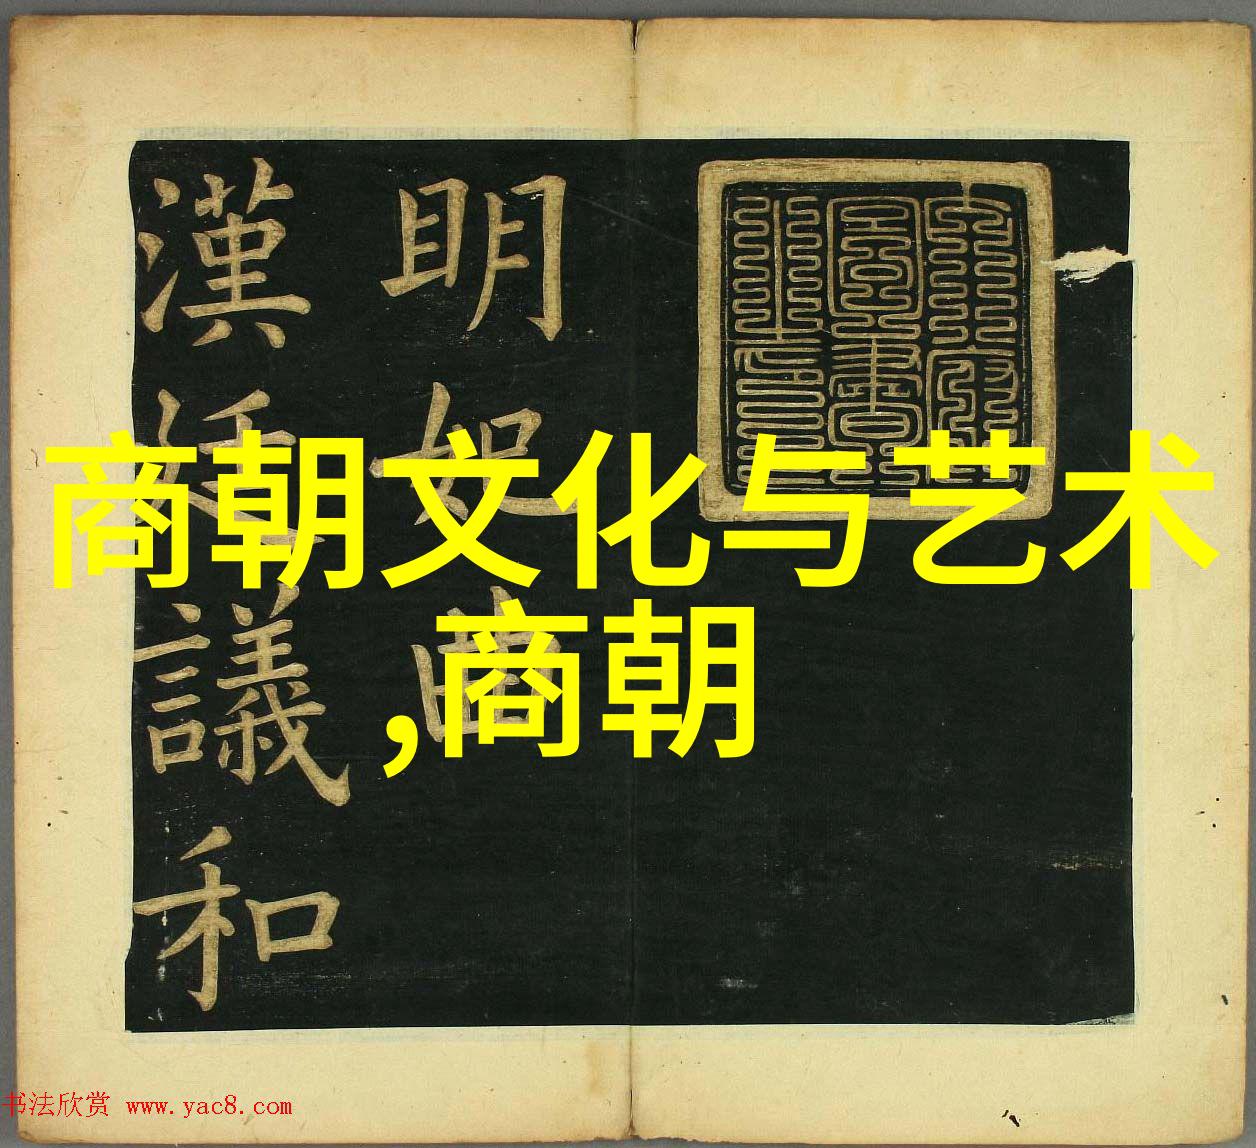 商朝文化与艺术
,商朝
明妃曲
漢
議和
书法欣赏 www.yac8.com